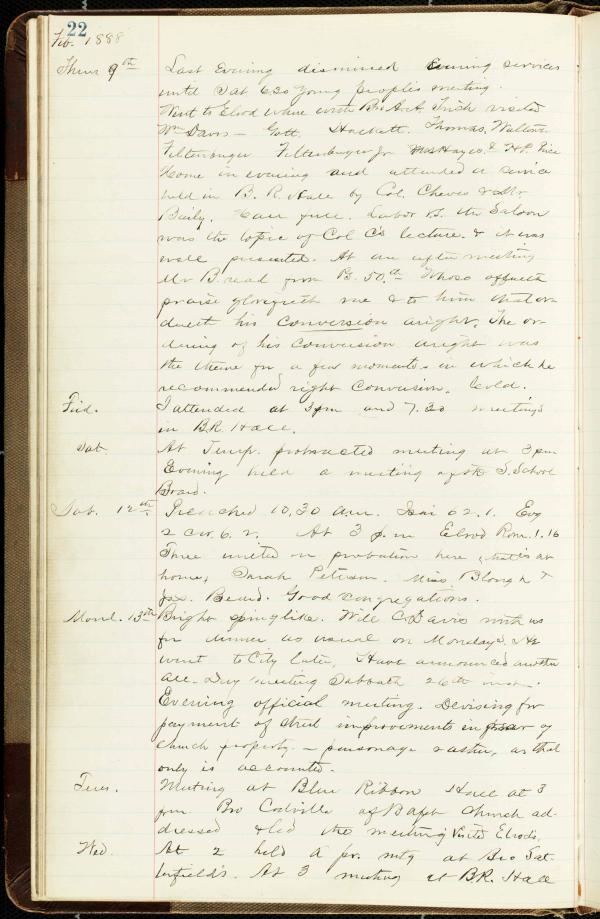 22
Feb. 1888
Thurs 9th Last Evening dismissed Evening services
until Sat 6.30 young peoples meeting.
Went to Elrod where with Bro. A.A. visited
Wm Davis — Gott. Hackett. Thomas. Walton.
Veltenburger Veltenburger Jr Hayes & H.P. Price
Home in evening and attended a service
held in B.R. Hall by Col. Cheves & Mr
Baily. Hall full. Labor vs. the Saloon
was the topic of Col C's lecture. & it was
well presented. At an after meeting
Mr B. read from Ps. 50.th Whoso offereth
praise glorifieth me & to him that or-
dereth his conversion aright. The or-
dering of his conversion aright was
the theme for a few moments in which he
recommended right conversion. Cold.
Frid. I attended at 3 pm and 7.30 meetings
in B.R. Hall.
Sat. At Temp. protracted meeting at 3 pm
Evening held a meeting of the S. School
Board.
Sab. 12th. Preached 10,30 a.m. Isai 62.1. Evg
2 Cor. 6.2. At 3 p.m Elrod Rom. 1.16
Three united on probation here, that is at
home, Sarah Peterson. Miss. Blough &
Jas. Beard. Good congregations.
Mond. 13th Bright springlike. Will C. Davis with us
for dinner as usual on Mondays. He
went to City later, Have announced another
all-Day meeting Sabbath 26th inst.
Evening official meeting. Devising for
payment of chd improvements in of
church property — parsonage & , as that
only is accounted.
Tues. Meeting at Blue Ribbon Hall at 3
pm. Bro Codville of Bapt church ad-
dressed & led the meeting Visited Elrods.
Wed. At 2 held a pr. mtg at Bro Sat-
terfield's. At 3 meeting at B.R. Hall